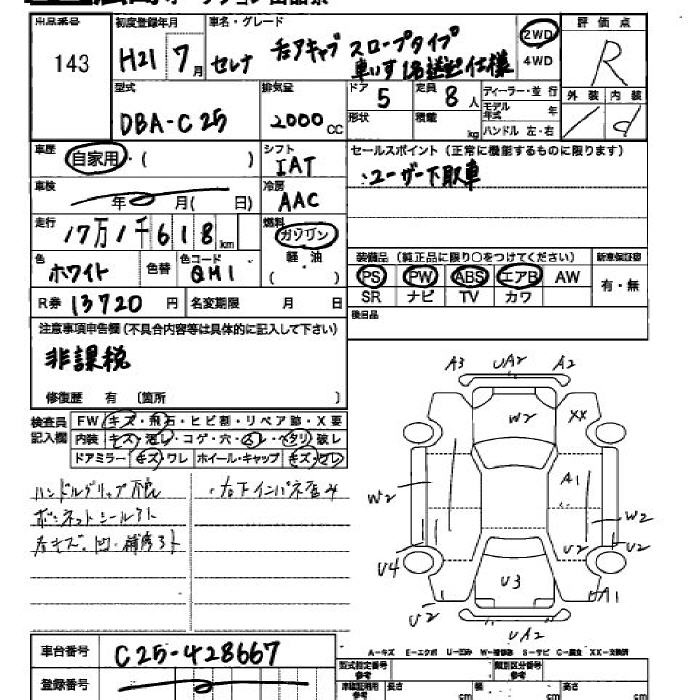 出品番号 初度登録年月 車名・グレード 評価点
143 H21 7月 セレナ チェアキャブ スロープタイプ 2WD R
車いす1名送迎仕様 4WD
型式 排気量 ドア 定員 ディーラー・並行 外装 内装
DBA-C25 2000cc 5 8人 モデル年式 年 d
形状 積載 kg ハンドル 左・右
車歴 自家用・( ) シフト セールスポイント (正常に機能するものに限ります)
IAT ・ユーザー下取車
車検 年 月( 日) 冷房 AAC
走行 17万1千618km 燃料 ガソリン
軽・油 ( )
色 ホワイト 色替 色コード QM1
装備品 (純正品に限り○をつけてください) 新車保証書
PS PW ABS エアB AW 有・無
SR ナビ TV カワ
R券 13720円 名変期限 月 日 後日品
注意事項申告欄(不具合内容等は具体的に記入して下さい)
非課税
修復歴 有 〔箇所 〕
検査員記入欄 FW キズ・飛石・ヒビ割・リペア跡・X要
内装 キズ・汚レ・コゲ・穴・スレ・ヘタリ・破レ
ドアミラー キズ・ワレ ホイール・キャップ キズ・ワレ
ボンネットシールアト
・右下インパネ歪み
A3 UA2 A2
W2 XX
A1
W2 W2
U2 U2
U4
U3 A1
U2
UA2
A-キズ E-エクボ U-凹み W-補修跡 S-サビ C-腐食 XX-交換済
車台番号 C25-428667
登録番号
型式指定番号 類別区分番号
長さ cm 幅 cm 高さ cm